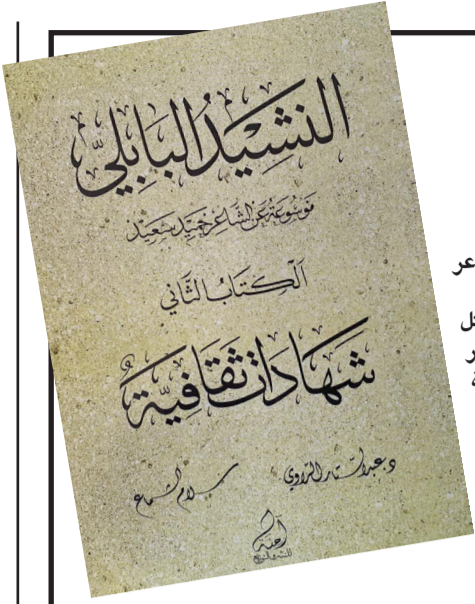 النَشِيْدُ البَابِلِيّ
مَوْسُوْعَةٌ عَنِ الشَّاعِرِ حَمِيْد سَعِيْد
الْكِتَابُ الثَّانِي
شَهَادَاتٌ ثَقَافِيَّةٌ
د. عبد الستار الراوي
سلام الشماع
للنشر والتوزيع
عر
كل
ر
ة